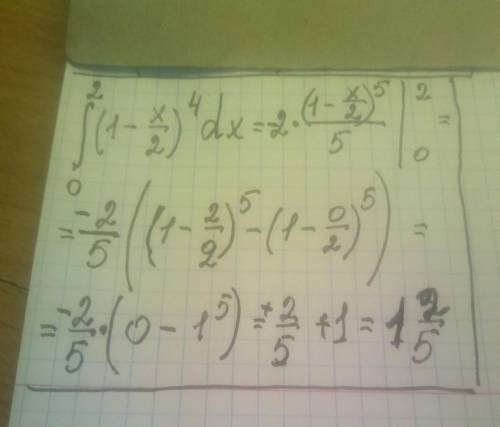 ∫₀² (1 - x/2)⁴ dx = 2 · (1 - x/2)⁵/5 |₀² =
= -2/5 ((1 - 2/2)⁵ - (1 - 0/2)⁵) =
= -2/5 · (0 - 1⁵) = +2/5 + 1 = 1 2/5